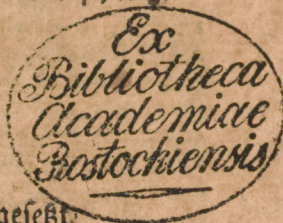 Ex
Bibliotheca
Academiae
Rostochiensis
gesetzt.